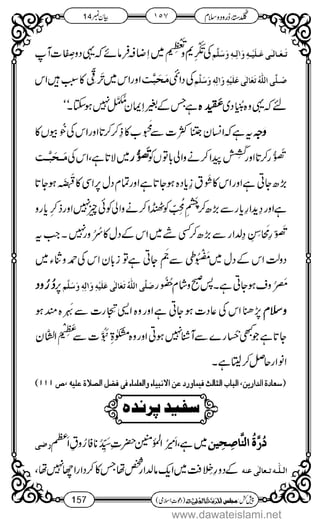 بیان نمبر 14 ۱۵۷ گلدستۂ درود و سلام
تَعَالٰی عَلَیْہِ وَاٰلِہٖ وَسَلَّم کی تکریم و تعظیم میں اضافہ فرمائے کہ یہی دو صفات آپ
صَلَّی اللّٰہُ تَعَالٰی عَلَیْہِ وَاٰلِہٖ وَسَلَّم کی دائمی مَحَبَّت اور اس میں ترقی کا سبب ہیں اس
لئے کہ یہی وہ بنیادی عقیدہ ہے جس کے بغیر ایمان مکمل نہیں ہوسکتا۔‘‘
وجہ یہ ہے کہ انسان جتنی کثرت سے محبوب کا ذِکر کرتا اور اس کی خوبیوں کا
تصور کرتا اور کشش پیدا کرنے والی باتوں کو تصور میں لاتا ہے، اس کی مَحَبَّت
بڑھ جاتی ہے اور اس کا شوق زیادہ ہو جاتا ہے اور تمام دل پر اسی کا قبضہ ہوجاتا
ہے اور دیدارِ یار سے بڑھ کر چشمِ محب کو ٹھنڈا کرنے والی کوئی چیز نہیں اور ذکرِ یار و
تصورِ محاسنِ دلدار سے بڑھ کر کسی شے میں اس کے دل کا سُرور نہیں۔ جب یہ
دولت اس کے دل میں مضبوطی سے جم جاتی ہے تو زبان اس کی حمد و ثناء میں
مصروف ہو جاتی ہے۔ پس صبح و شام حضور صَلَّی اللّٰہُ تَعَالٰی عَلَیْہِ وَاٰلِہٖ وَسَلَّم پر دُرُود
وسلام پڑھنا اس کی عادت بن جاتی ہے اور وہ ایسی تجارت سے بہرہ مند ہو
جاتا ہے جو کبھی خسارے سے آشنا نہیں ہوتی اور وہ مشکوٰۃِ نبوت سے عظیم الشان
انوار حاصل کر لیتا ہے۔
(سعادة الدارین، الباب الثالث فیماورد عن الانبیاء والعلماء فی فضل الصلاة علیه، ص ۱۱۱)
سفید پرندہ
دُرَّۃُ النَّاصِحِین میں ہے، امیرُ المؤمنین حضرتِ سیدنا فاروقِ اعظم رضی
اللّٰہ تعالٰی عنہ کے دورِ خلافت میں ایک مالدار شخص تھا جس کا کردار اچھا نہیں تھا،
157 پیش کش: مجلس المدینۃ العلمیۃ (دعوتِ اسلامی)
www.dawateislami.net